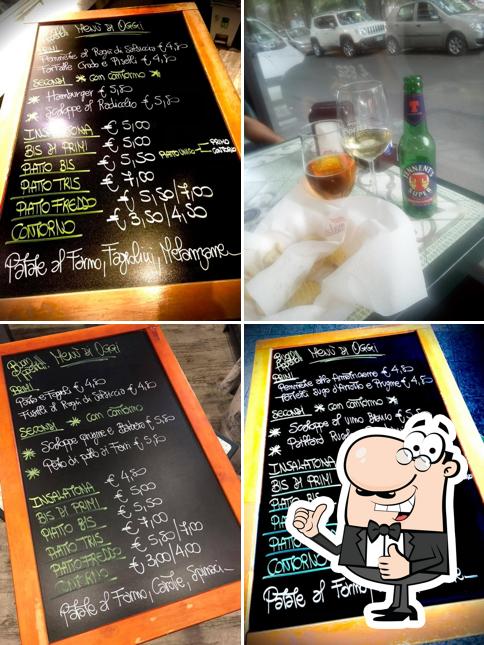 Buon Appetito! Menù di Oggi
PRIMI
Pennette al Ragù di Salsiccia € 4,80
Farfalle Crudo e Piselli € 4,80
SECONDI * con contorno *
* Hamburger € 5,80
* Scaloppe al Radicchio € 5,80
INSALATONA € 5,00
BIS DI PRIMI € 5,00
PIATTO BIS € 5,50 PIATTO UNICO PRIMO CONTORNO
PIATTO TRIS € 7,00
PIATTO FREDDO € 5,50/7,00
CONTORNO € 3,50/4,50
Patate al Forno, Fagiolini, Melanzane
TENNENT'S
SUPER
Buon Appetito! Menù di Oggi
PRIMI
Pasta e Fagioli € 4,80
Fusilli al Ragù di Salsiccia € 4,80
SECONDI * con contorno *
* Scaloppe prugne e € 5,80
* Petto di pollo ai Ferri € 5,80
INSALATONA € 4,80
BIS DI PRIMI € 5,00
PIATTO BIS € 5,50
PIATTO TRIS € 7,00
PIATTO FREDDO € 5,80/7,00
CONTORNO € 3,00/4,00
Patate al Forno, Carote, Spinaci
Buon Appetito! Menù di Oggi
PRIMI
Pennette alla € 4,80
Tortelli Sugo d'Arrosto e Prugne € 4,80
SECONDI * con contorno *
* Scaloppe al Vino Bianco € 5
* Paillard
INSALATONA
BIS DI PRIMI
PIATTO BIS
PIATTO
PIATTO
CONTORNO
Patate al Forno